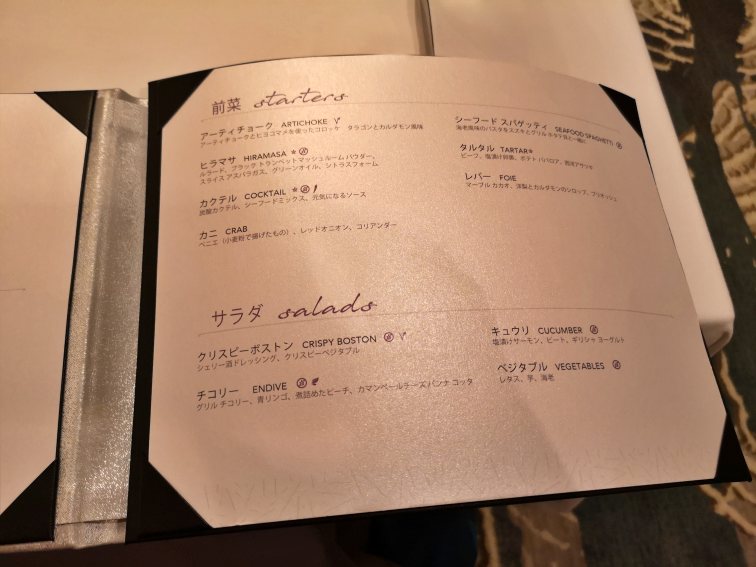 前菜 starters
アーティチョーク ARTICHOKE
アーティチョークとヒヨコマメを使ったコロッケ タラゴンとカルダモン風味
ヒラマサ HIRAMASA *
ルラード、ブラック トランペットマッシュルーム パウダー、
スライス アスパラガス、グリーンオイル、シトラスフォーム
カクテル COCKTAIL *
炭酸カクテル、シーフードミックス、元気になるソース
カニ CRAB
ベニエ（小麦粉で揚げたもの）、レッドオニオン、コリアンダー
シーフード スパゲッティ SEAFOOD SPAGHETTI
海老風味のパスタをスズキとグリル ホタテ貝と一緒に
タルタル TARTAR*
ビーフ、塩漬け卵黄、ポテト ババロア、西洋アサツキ
レバー FOIE
マーブル カカオ、洋梨とカルダモンのシロップ、ブリオッシュ
サラダ salads
クリスピーボストン CRISPY BOSTON
シェリー酒ドレッシング、クリスピーベジタブル
チコリー ENDIVE
グリル チコリー、青リンゴ、煮詰めたビーチ、カマンベールチーズ パンナ コッタ
キュウリ CUCUMBER
塩漬けサーモン、ビート、ギリシャ ヨーグルト
ベジタブル VEGETABLES
レタス、芋、海老